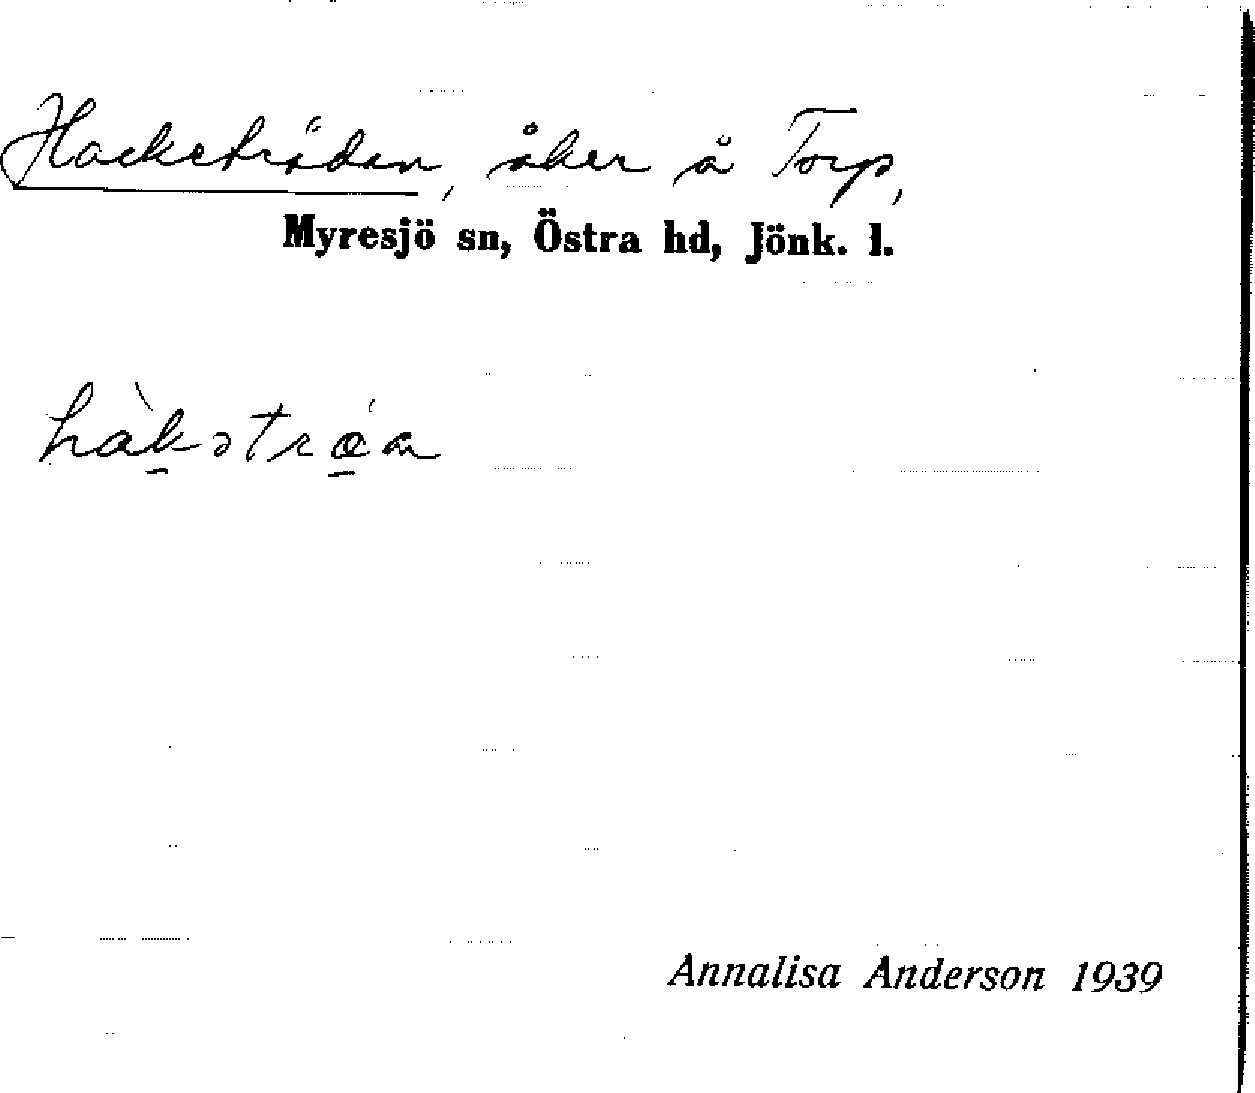 Hacketrädan, åker å Torp,
Myresjö sn, Östra hd, Jönk. l.
hàkətræ̀a
Annalisa Anderson 1939